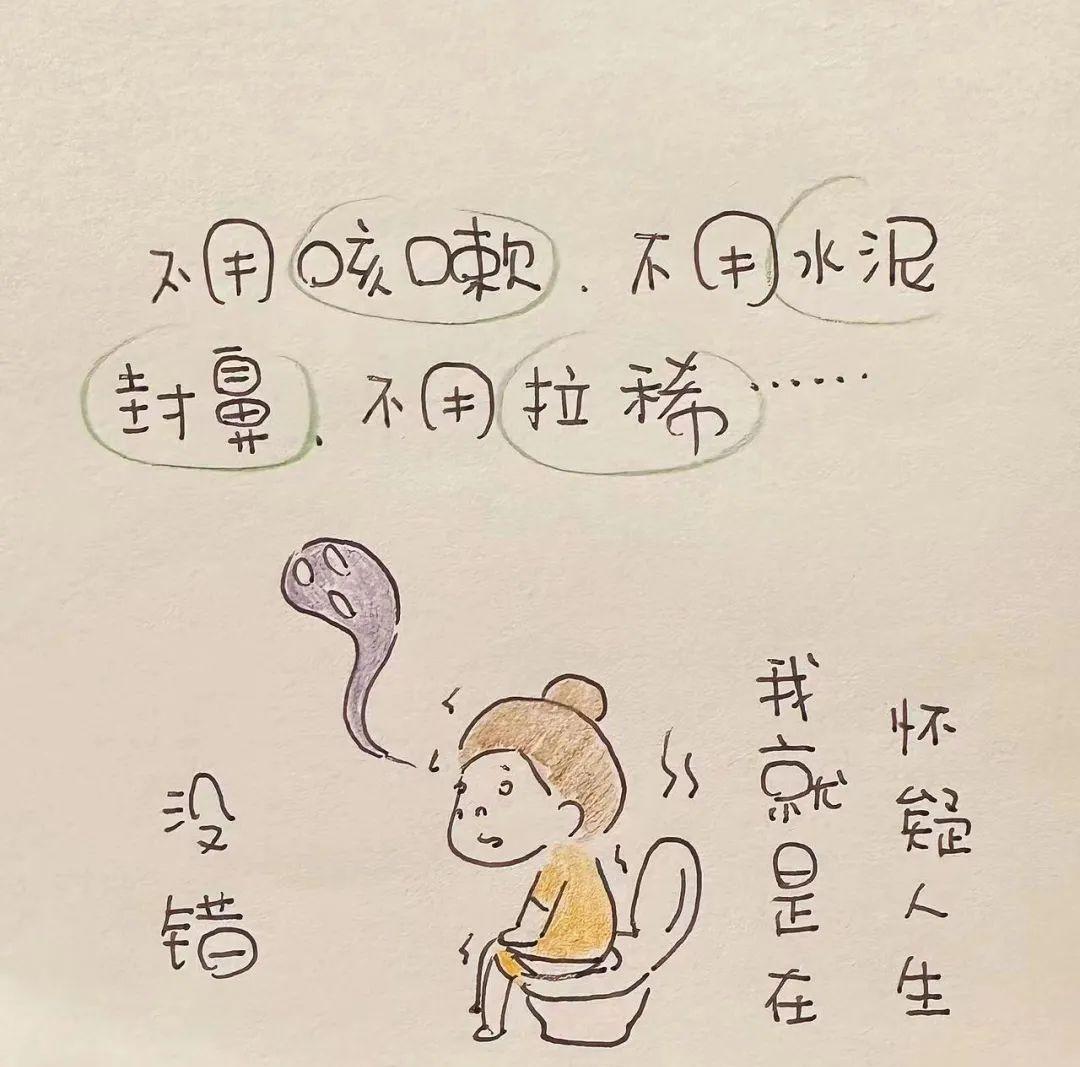 不用咳嗽.不用水泥
封鼻.不用拉稀······
没错
我就是在
怀疑人生